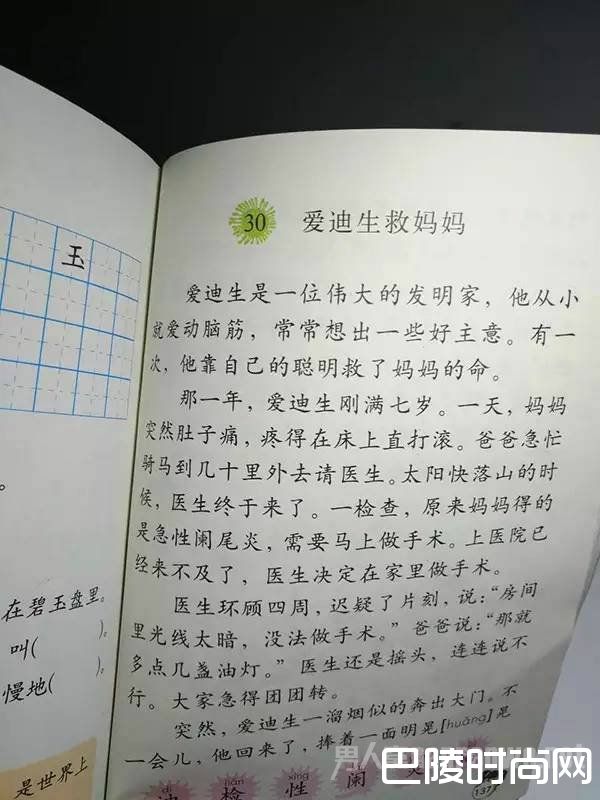 玉
在碧玉盘里。
叫(　　)。
慢地(　　)。
是世界上
30 爱迪生救妈妈
爱迪生是一位伟大的发明家，他从小
就爱动脑筋，常常想出一些好主意。有一
次，他靠自己的聪明救了妈妈的命。
那一年，爱迪生刚满七岁。一天，妈妈
突然肚子痛，疼得在床上直打滚。爸爸急忙
骑马到几十里外去请医生。太阳快落山的时
候，医生终于来了。一检查，原来妈妈得的
是急性阑尾炎，需要马上做手术。上医院已
经来不及了，医生决定在家里做手术。
医生环顾四周，迟疑了片刻，说：“房间
里光线太暗，没法做手术。”爸爸说：“那就
多点几盏油灯。”医生还是摇头，连连说不
行。大家急得团团转。
突然，爱迪生一溜烟似的奔出大门。不
一会儿，他回来了，捧着一面明晃[huǎng]晃
dí jiǎn xìng
迪 检 性 阑
137
男人
巴陵时尚网